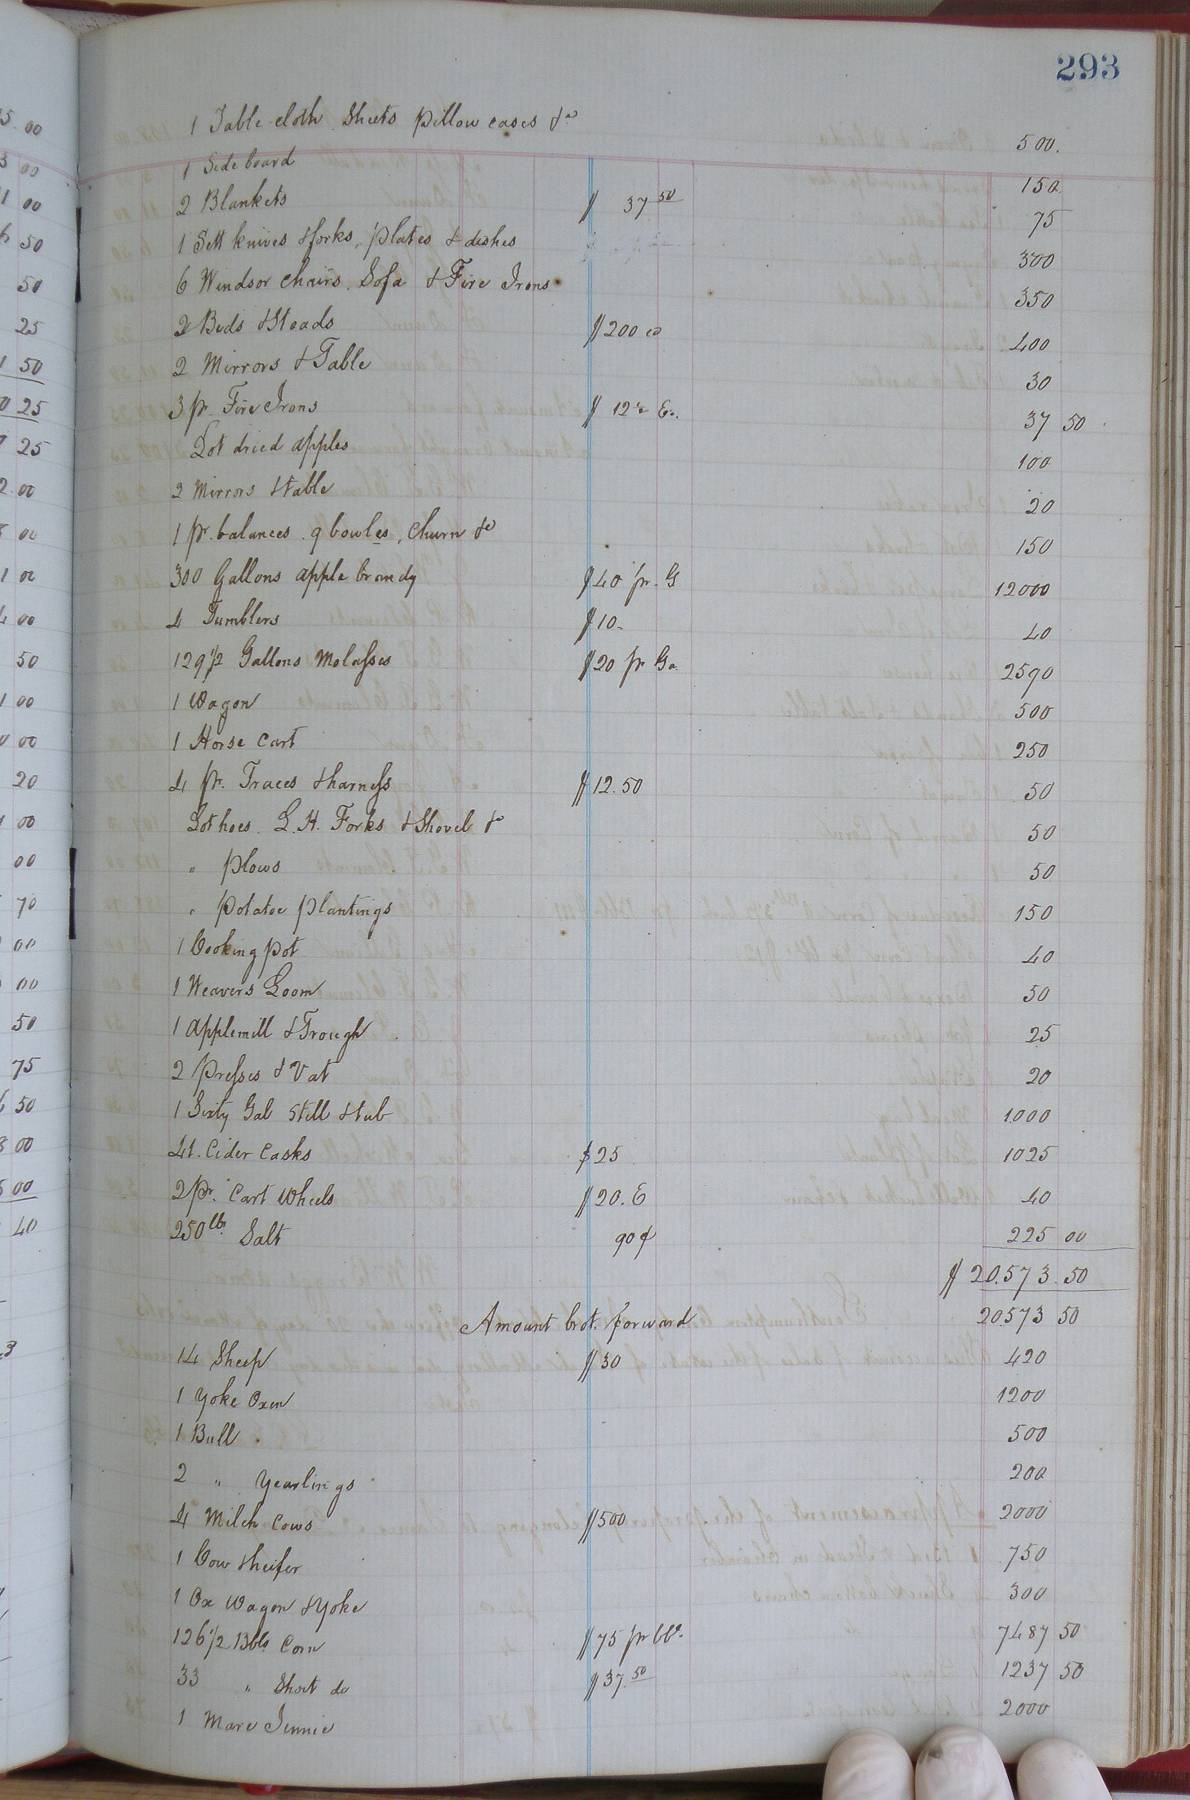 293
1 Table cloth Sheets Pillow cases &c 500.
1 Side board 150
2 Blankets $ 37 50 75
1 Sett knives & forks, plates & dishes 300
6 Windsor Chairs. Sofa & Fire Irons 350
2 Beds & Steads $200 400
2 Mirrors & Table 30
3 pr Fire Irons $ 12 E. 37 50
Lot dried apples 100
2 Mirrors & table 20
1 pr. balances. 9 bowles, Churn &c 150
300 Gallons apple brandy $40 pr. G 12000
4 Tumblers $10- 40
129 1/2 Gallons Molasses $20 pr Ga 2590
1 Wagon 500
1 Horse Cart 250
4 pr. Traces & harness $12.50 50
Lot hoes. L. H. Forks & Shovel & 50
" plows 50
" Potatoe plantings 150
1 Cooking pot 40
1 Weavers Loom 50
1 Applemill & Trough 25
2 Presses & Vat 20
1 Sixty Gal Still & tub 1000
41. Cider Casks $25 1025
2 pr. Cart Wheels $20. E 40
250 lb. Salt 90¢ 225 00
$ 20.573.50
Amount brot. forward 20573 50
14 Sheep $30 420
1 Yoke Oxen 1200
1 Bull 500
2 " Yearlings 200
4 Milch Cows $500 2000
1 Cow & heifer 750
1 Ox Wagon & Yoke 300
126 1/2 Bbls Corn $75 pr bbl. 7487 50
33 " Short do $37.50 1237 50
1 Mare Jennie 2000